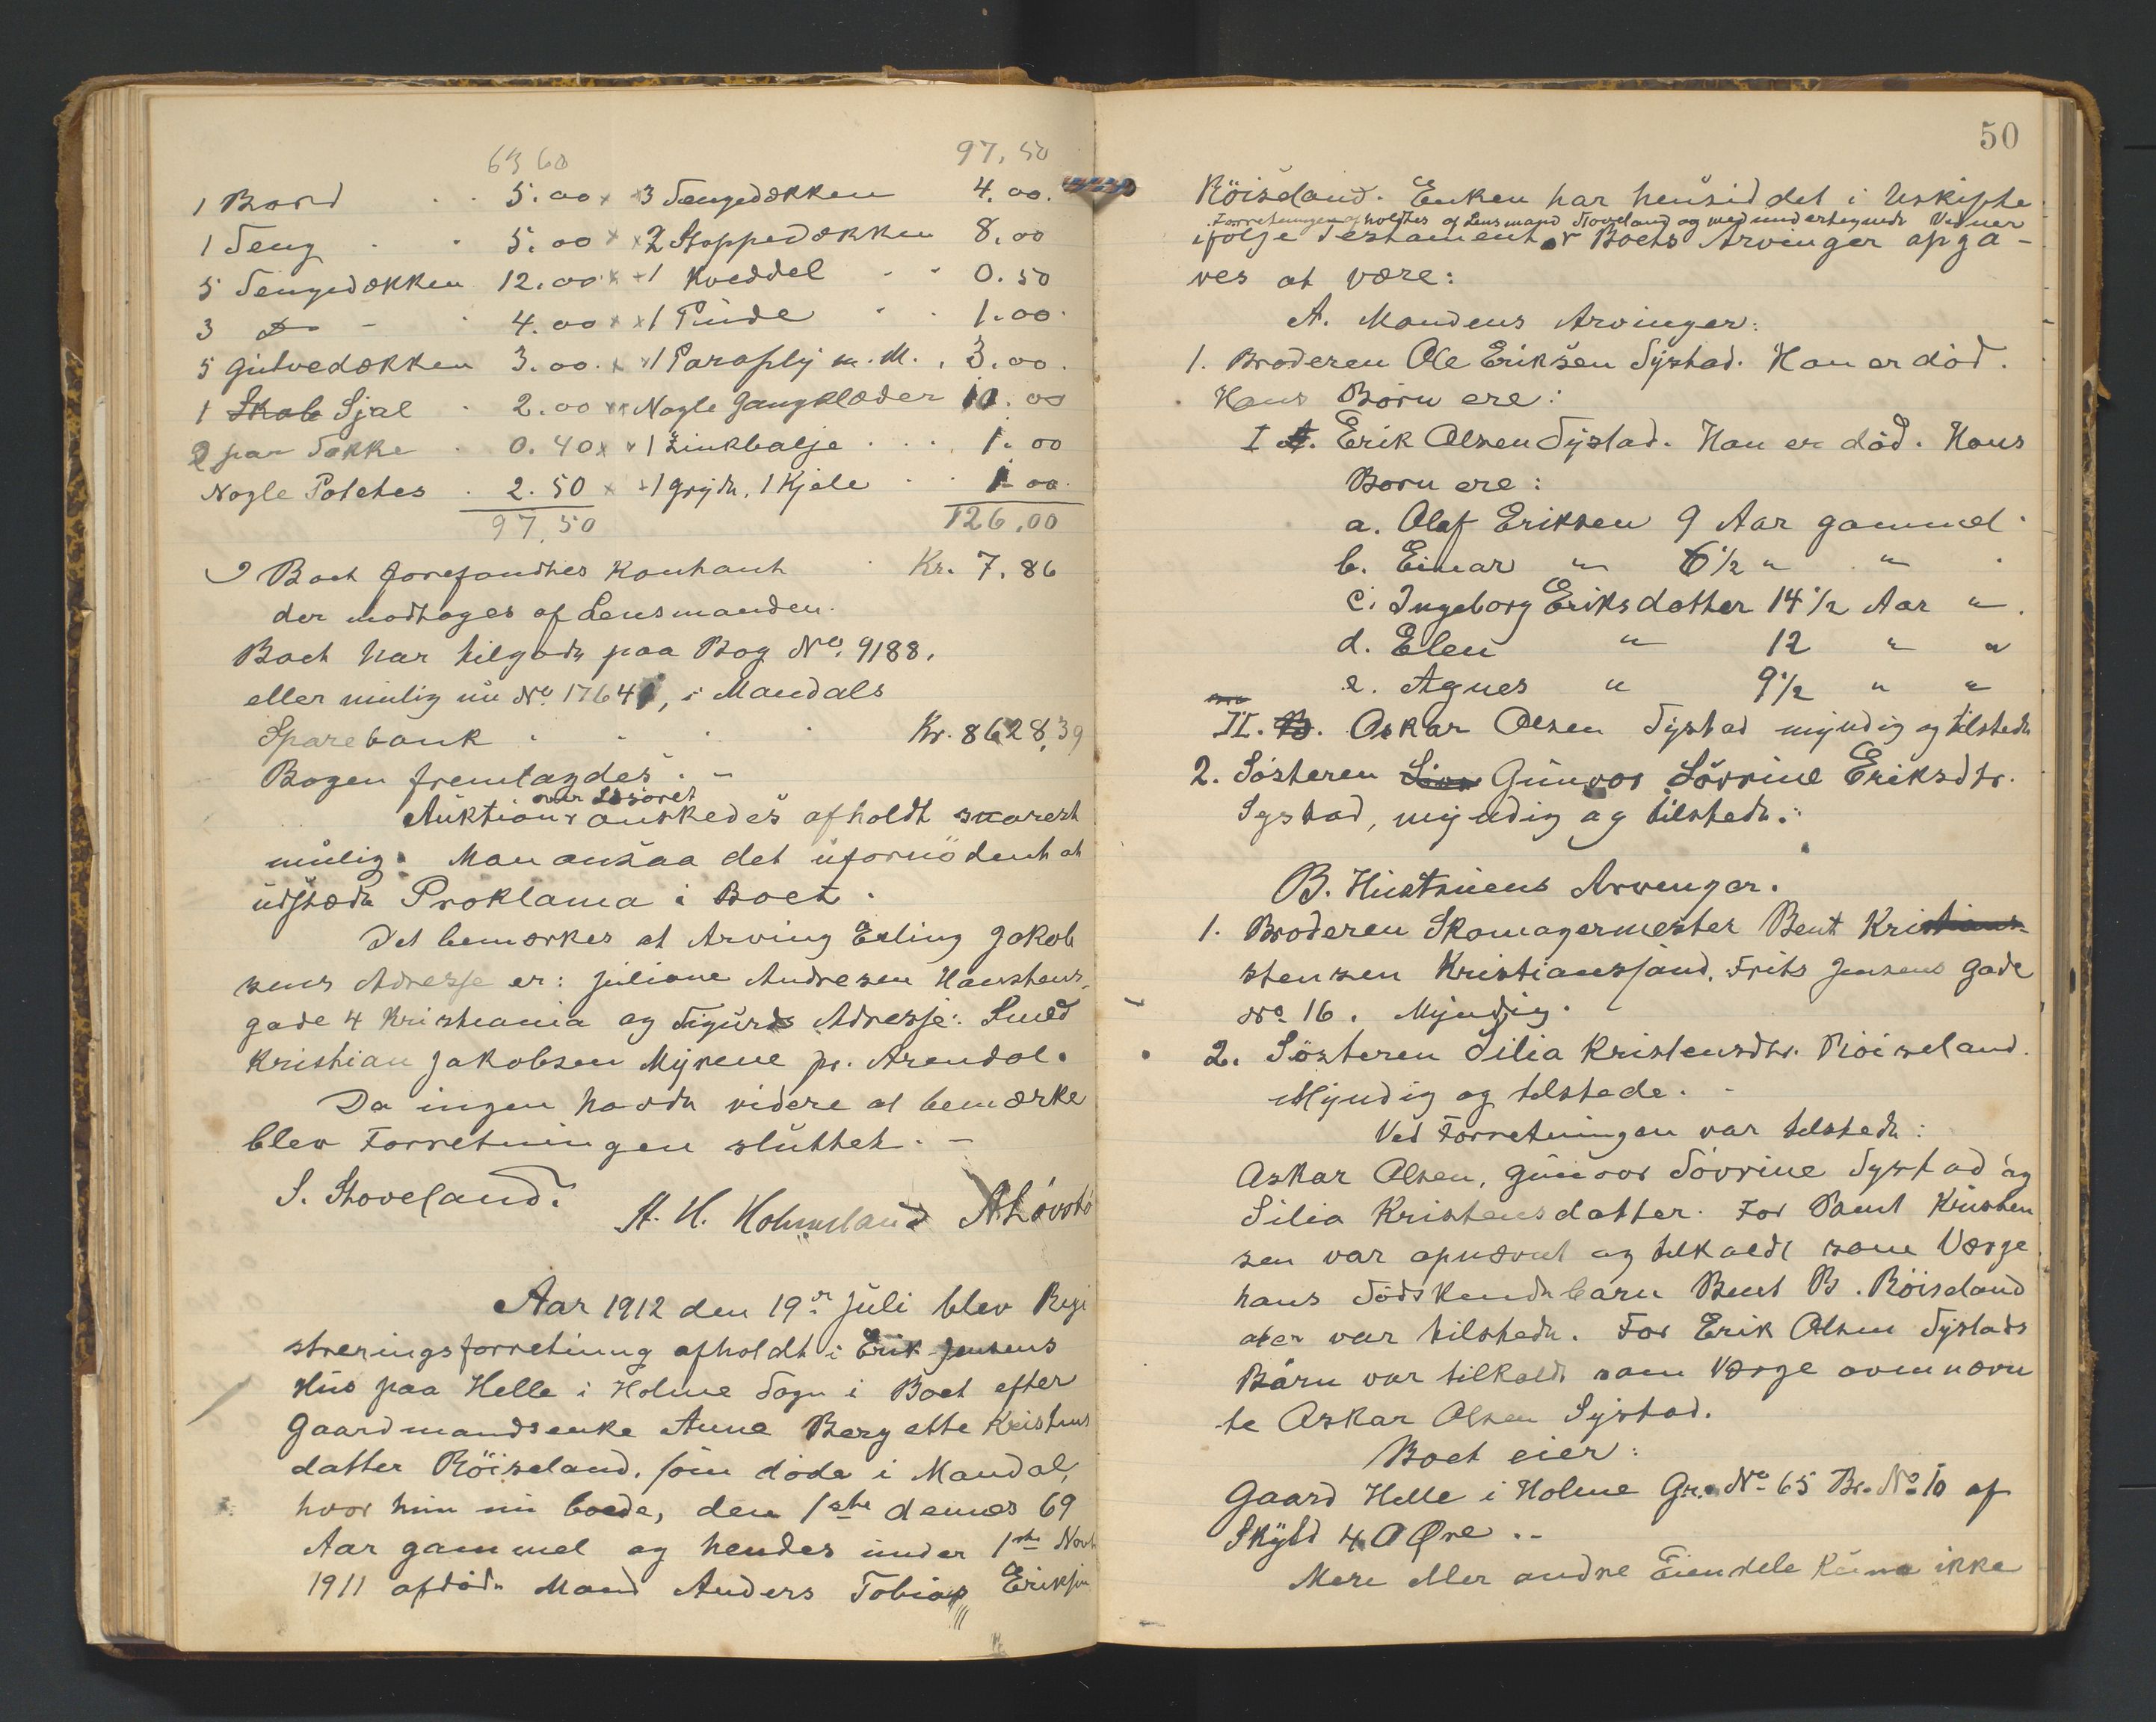 63 60 97,50
1 Bord . . 5.00 x x 3 Sengedækken 4.00.
1 Seng . . 5.00 x x 2 Stoppedækken 8.00
5 Sengedækken 12.00 x x 1 Kveddel . . 0.50
3 Do - . 4.00 x x 1 Pude . . 1.00.
5 Gulvedækken 3.00. x x 1 Paraply m. M. . 3.00.
1 Skab Sjal . 2.00 x x Nogle Gangklæder 10.00
2 par Sokke . 0.40 x x 1 Zinkbalje . . . 1.00
Nogle Poteter . 2.50 x x 1 Gryde, 1 Kjele . . 1.00.
97,50 126,00
I Boet forefandtes kontant . Kr. 7.86
der modtoges af Lensmanden.
Boet har tilgode paa Bog No. 9188,
eller mulig nu No. 17641, i Mandals
Sparebank . . . . Kr. 8628,39
Bogen fremlagdes. -
over Løsøret
Auktion ønskedes afholdt snarest
mulig. Man ansaa det ufornødent at
udstede Proklama i Boet.
Det bemærkes at Arving Erling Jakob
sens Adresse er: Juliane Andresen Hausthens
gade 4 Kristiania og Sigurds Adresse: Smed
Kristian Jakobsen Myrene pr. Arendal.
Da ingen havde videre at bemærke
blev Forretningen sluttet. -
S. Stoveland. A. H. Holmesland A Løvstø
Aar 1912 den 19de Juli blev Regi
streringsforretning afholdt i Erik Jensens
Hus paa Helle i Holme Sogn i Boet efter
Gaardmandsenke Anne Bergette Kristens
datter Röiseland, som døde i Mandal,
hvor hun nu boede, den 1ste dennes 69
Aar gammel og hendes under 1ste Novb
1911 afdøde Mand Anders Tobias Eriksen
50
Röiseland. Enken har hensiddet i Uskiftе
Forretningen afholdtes af Lensmand Stoveland og med undertegnede Vidner
ifølge Testament. Boets Arvinger opga-
ves at være:
A. Mandens Arvinger:
1. Broderen Ole Eriksen Systad. Han er død.
Hans Børn ere:
I A. Erik Olsen Systad. Han er død. Hans
Børn ere:
a. Olaf Eriksen 9 Aar gammel.
b. Einar " 6 1/2 " " .
c. Ingeborg Eriksdatter 14 1/2 Aar ".
d. Elen " 12 " "
e. Agnes " 9 1/2 " "
II. B. Askar Olsen Systad myndig og tilstede
2. Søsteren Gunvor Sövrine Eriksdtr.
Systad, myndig og tilstede.
B. Hustruens Arvinger.
1. Broderen Skomagermester Bent Kristians-
stensen Kristianssand. Frits Jensens Gade
No 16. Myndig.
2. Søsteren Silia Kristensdtr. Röiseland.
Myndig og tilstede. -
Ved Forretningen var tilstede:
Askar Olsen, Gunvor Sövrine Systad og
Silia Kristensdatter. For Bent Kristen
sen var opnævnt og tilkaldt som Værge
hans Södskendebarn Bent B. Röiseland
der var tilstede. For Erik Olsen Systads
Børn var tilkaldt som Værge ovennævn
te Askar Olsen Systad.
Boet eier:
Gaard Helle i Holme Gr. No 65 Br. No 10 af
Skyld 40 Øre. -
Mere eller andre Eiendele kunne ikke